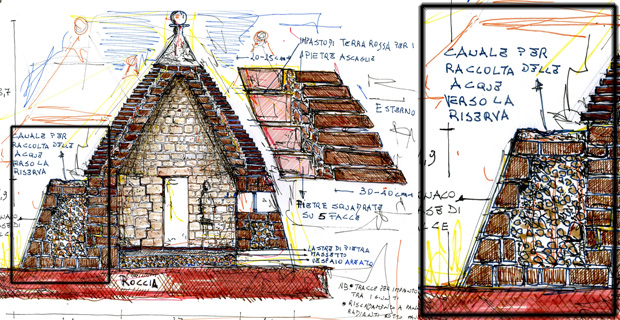 IMPASTO DI TERRA ROSSA PER I
20-25cm
A PIETRE A SCAGLIE
3,7
CANALE PER
RACCOLTA DELLE
ACQUE
VERSO LA
RISERVA
ESTERNO
30-20cm
PIETRE SQUADRATE
SU 5 FACCE
LASTRE DI PIETRA
MASSETTO
VESPAIO AREATO
ROCCIA
NB • TRACCE PER IMPIANTO
TRA I GIUNTI
• RISCALDAMENTO A
CANALE PER
RACCOLTA DELLE
ACQUE
VERSO LA
RISERVA
,9